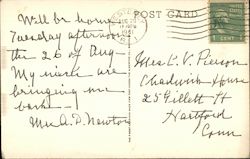 POST CARD
1 CENT 1
Will be home
Tuesday afternoon
the 26 of Aug –
My niece are
bringing me
back –
Mrs. A. D. Newton
Mrs C. V. Pierson
Chadwick House
25 Gillett St
Hartford
Conn